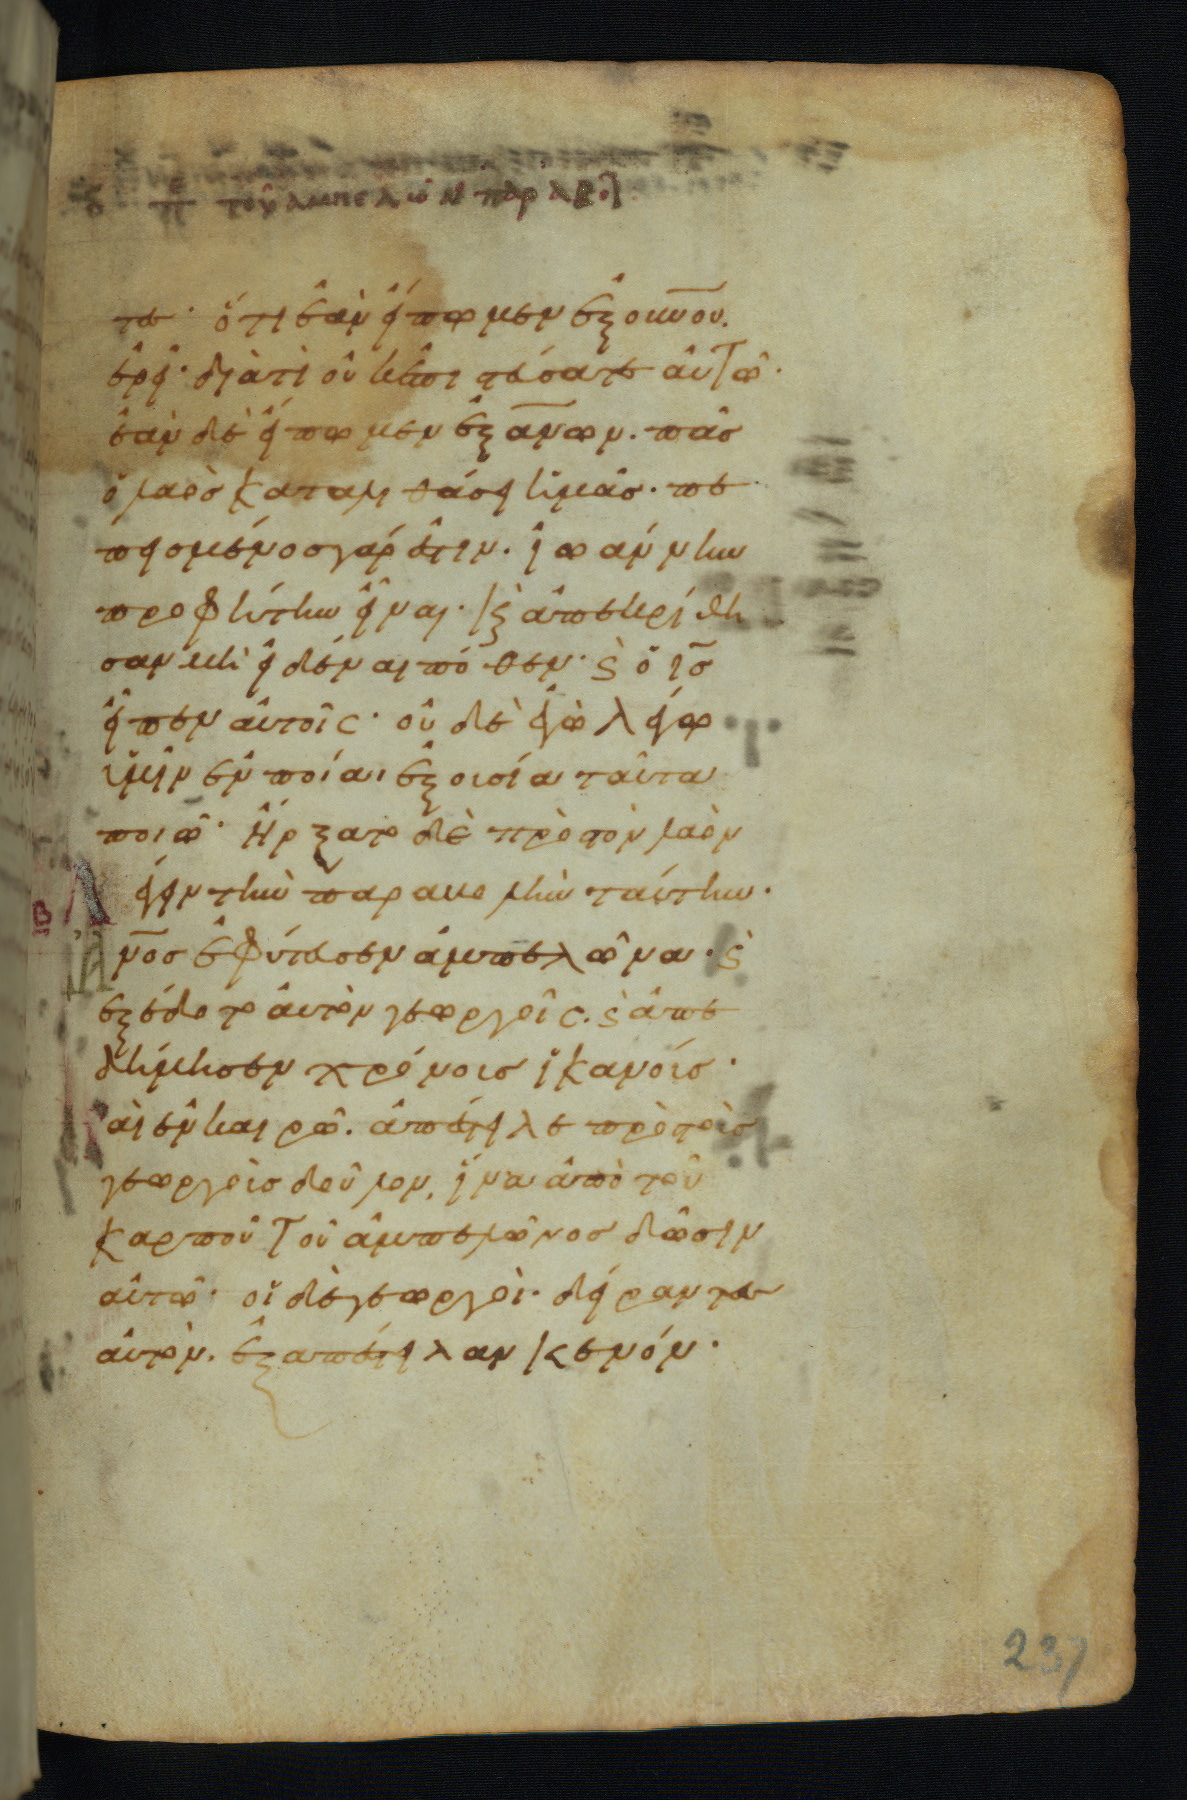 τοῦ ἀμπελῶν παραβο
τες· ὅτι ἐὰν εἴπωμεν ἐξ οὐνου.
ἐρεῖ· διὰτὶ οὐκ ἐπιστεύσατε αὐτῶ·
ἐὰν δὲ εἴπωμεν ἐξ ἀνων. πᾶσ
ὁ λαὸσ καταλιθάσει ἡμᾶσ. πε
πεισμένοσ γάρ ἐστιν. ἰωάννην
προφήτην εἶναι. κ(αὶ) ἀπεκρίθη
σαν μὴ εἰδέναι πόθεν· κ(αὶ) ὁ ισ
εἶπεν αὐτοῖς· οὐδὲ ἐγὼ λέγω
ὑμῖν ἐν ποίαι ἐξουσία ταῦτα
ποιῶ· Ἤρξατο δὲ πρὸς τὸν λαὸν
λέγειν τὴν παραβολὴν ταύτην.
ἄνοσ ἐφύτευσεν ἀμπελῶνα· κ(αὶ)
ἐξέδοτο αὐτὸν γεωργοῖς. κ(αὶ) ἀπε
δήμησεν χρόνουσ ἱκανούσ·
κ αὶ ἐν καιρῶ. ἀπέστειλε πρὸς τοὺσ
γεωργοὺσ δοῦλον, ἵνα ἀπὸ τοῦ
καρποῦ τοῦ ἀμπελῶνοσ δῶσιν
αὐτῶ· οἱ δὲ γεωργοὶ· δείραντεσ
αὐτὸν. ἐξαπέστειλαν κενόν.
237